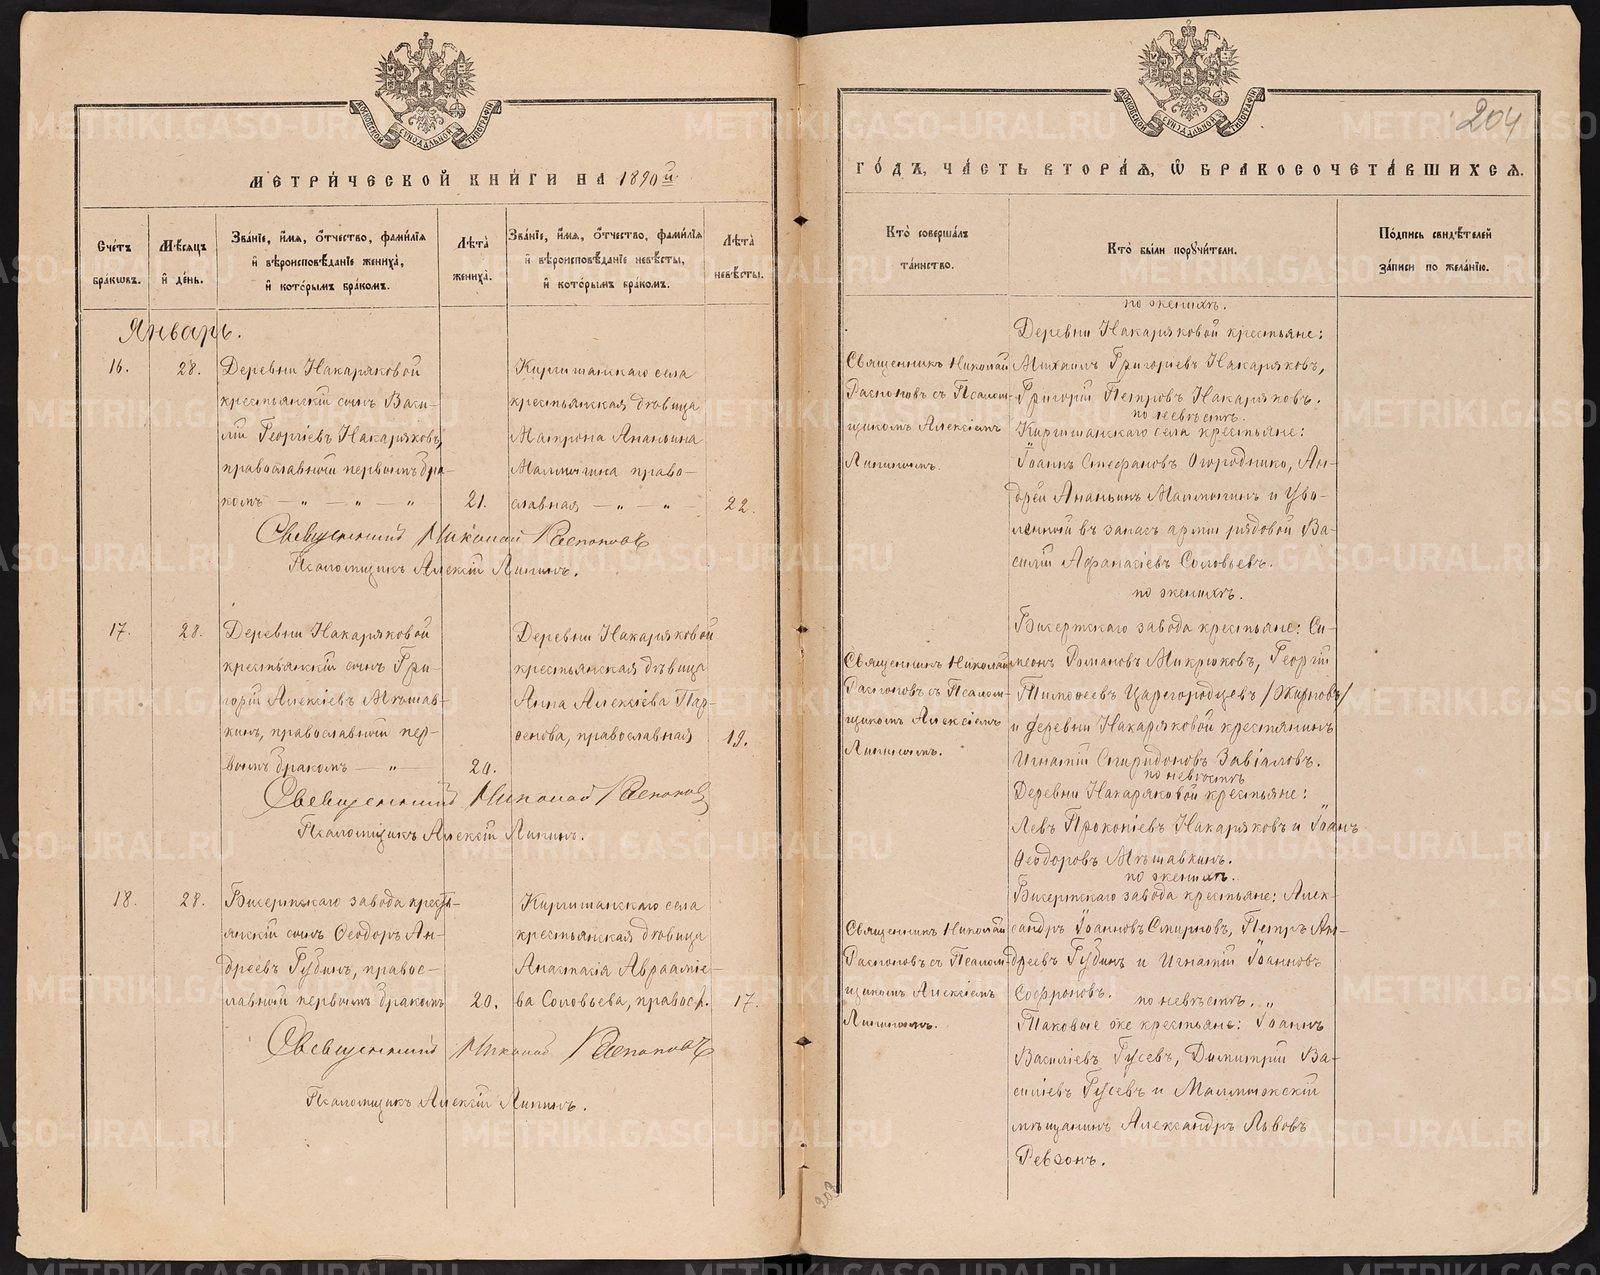 МОСКОВСКОЙ СУНОДАЛЬНОЙ ТИПОГРАФІИ
МЕТРИ́ЧЕСКОЙ КНИ́ГИ НА 1890й.
Сче́тъ бра́кѡвъ.
Мѣ́сяцъ и̓ де́нь.
Зва́нїе, и̓́мя, ѻ̓́тчество, фами́лїя
и̓ вѣроисповѣ́данїе жениха̀,
и̓ кото́рымъ бра́комъ.
Лѣта̀ жениха̀.
Зва́нїе, и̓́мя, ѻ̓́тчество, фами́лїя
и̓ вѣроисповѣ́данїе невѣ́сты,
и̓ кото́рымъ бра́комъ.
Лѣта̀ невѣ́сты.
Январь.
16.
28.
Деревни Накаряковой
крестьянскій сынъ Васи-
лій Георгіевъ Накаряковъ,
православный первымъ бра-
комъ — „ — „ — „
21.
Киргишанскаго села
крестьянская дѣвица
Матрона Ананьина
Малмыгина право-
славная — „ — „ —
22.
Священникъ Николай Распоповъ
Псаломщикъ Алексій Липинъ.
17.
28.
Деревни Накаряковой
крестьянскій сынъ Гри-
горій Алексіевъ Мѣшав-
кинъ, православный пер-
вымъ бракомъ — „ —
20.
Деревни Накаряковой
крестьянская дѣвица
Анна Алексіева Пар-
ѳенова, православная
19.
Священникъ Николай Распоповъ
Псаломщикъ Алексій Липинъ.
18.
28.
Бисертскаго завода кресть-
янскій сынъ Ѳеодоръ Ан-
дреевъ Губинъ, правос-
лавный первымъ бракомъ
20.
Киргишанскаго села
крестьянская дѣвица
Анастасія Авраамiе-
ва Соловьева, правосл.
17.
Священникъ Николай Распоповъ
Псаломщикъ Алексій Липинъ.
204
МОСКОВСКОЙ СУНОДАЛЬНОЙ ТИПОГРАФІИ
ГО́ДЪ, ЧА́СТЬ ВТОРА́Я, Ѡ БРАКОСОЧЕТА́ВШИХСЯ.
Кто̀ соверша́лъ
та́инство.
Кто̀ бы́ли порꙋчи́тели.
По́дпись свидѣ́телей
за́писи по жела́нїю.
по женихѣ.
Деревни Накаряковой крестьяне:
Священникъ Николай
Распоповъ съ Псалом-
щикомъ Алексіемъ
Липинымъ.
Михаилъ Григорьевъ Накаряковъ,
Григорій Петровъ Накаряковъ.
по невѣстѣ.
Киргишанскаго села крестьяне:
Іоаннъ Стефановъ Огородниковъ, Ан-
дрей Ананьинъ Малмыгинъ и Уво-
ленный въ запасъ арміи рядовой Ва-
силій Афанасіевъ Соловьевъ.
по женихѣ.
Бисертскаго завода крестьяне: Си-
Священникъ Николай
Распоповъ съ Псалом-
щикомъ Алексіемъ
Липинымъ.
меонъ Романовъ Микрюковъ, Георгій
Тимоѳеевъ Царегородцевъ /Жирновъ/
и деревни Накаряковой крестянинъ
Игнатій Спиридоновъ Завіаловъ.
по невѣстѣ
Деревни Накаряковой крестьяне:
Левъ Прокопіевъ Накаряковъ и Іоаннъ
Ѳеодоровъ Мѣшавкинъ.
по женихѣ.
Бисертскаго завода крестьяне: Алек-
Священникъ Николай
Распоповъ съ Псалом-
щикомъ Алексіемъ
Липинымъ.
сандръ Іоанновъ Смирновъ, Петръ Ан-
дреевъ Губинъ и Игнатій Іоанновъ
Софроновъ.
по невѣстѣ.
Таковые же крестьяне: Іоаннъ
Василіевъ Гусевъ, Димитрій Ва-
силіевъ Гусевъ и Малмыжскій
мѣщанинъ Александръ Львовъ
Ревзонъ.
203
METRIKI.GASO-URAL.RU